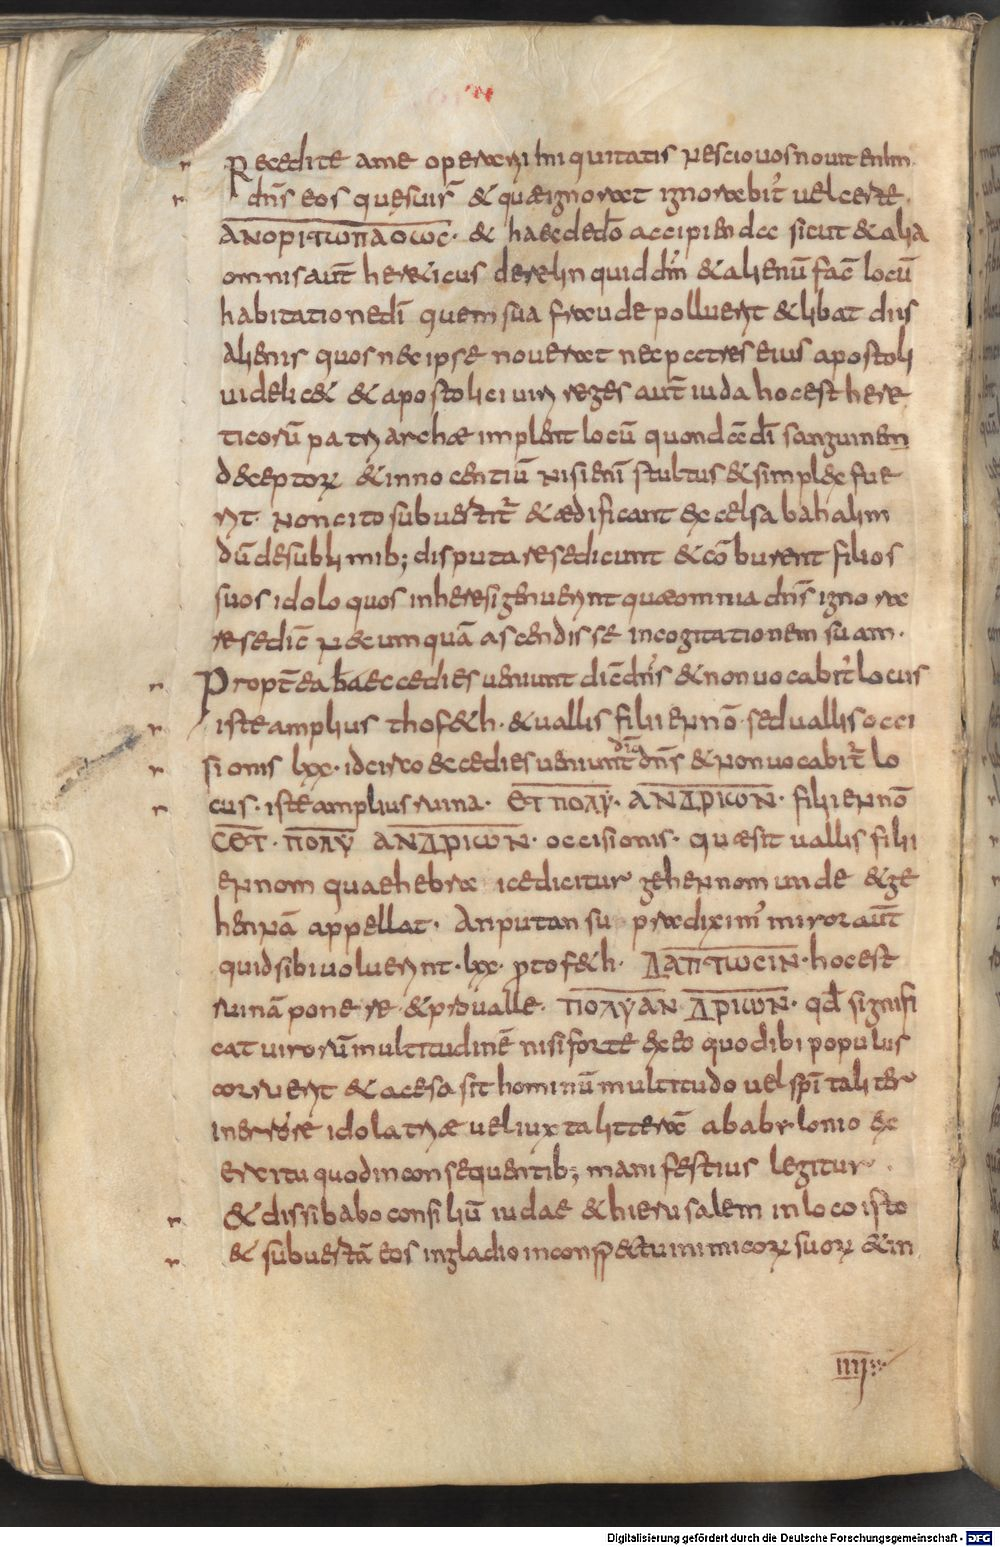 Recedite a me operarii iniquitatis nescio uos nouit enim
dn̄s eos que sui s̄ & quæ ignorat ignorabit᷒ uel certe
ΑΝΟΡΙΤΩΠΑΘΩC· & haec de d̄o accipienda sicut & alia
omnis aut̄ hereticus derelinquid dn̄m & alienū fac̄ locū
habitatione dī quem sua fraude polluerit & libat diis
alienis quos nec ipse nouerat nec patres eius apostoli
uidelic& & apostolici uiri reges aut̄ iuda hoc est here
ticorū patriarchæ implent locū quondā dī sanguinem
deceptorꝝ & innocentiū nisi enī stultus & simplex fue
rit· non cito subuertit᷒ & ædificant excelsa bahalim
dū de sublimib; disputare se dicunt & cōburent filios
suos idolo quos in heresi genuerint quæ omnia dn̄s ignora
re se dic̄ nec umquā ascendisse in cogitationem suam·
Propt̄ea haec ecce dies ueniunt dic̄ dn̄s & non uocabit᷒ locus
iste amplius thof&h· & uallis filii ennō· sed uallis occi
sionis lxx· idcirco ecce dies ueniunt dic̄ dn̄s & non uocabit᷒ lo
cus· iste amplius ruina· ЄΤ ΠΟΛΥ· ΑΝΔΡΙΩΝ· filii ennō
CЄΤ· ΠΟΛΥ ΑΝΔΡΙΩΝ· occisionis· quæ sit uallis filii
ennom quae hebra ice dicitur gehennom unde & ge
hennā appellat· an putan su pra diximꝰ miror aut̄
quid sibi uoluerint· lxx· p tof&h· ΔΑΠΤΩCΙΝ· hoc est
ruinā ponere & pro ualle· ΠΟΛΥΑΝ ΔΡΙΩΝ· qd̄ signifi
cat uirorū multitudinē nisi forte ex eo quod ibi populus
corruerit & acesa sit hominū multitudo uel sp̄italiter
in errore idolatriæ uel iuxta litterā a babylonio ex
ercitu quod in consequentib; manifestius legitur·
& dissibabo consiliū iudae & hierusalem in loco isto
& subuertā eos in gladio in conspectu inimicorꝝ suorꝝ & in
IIII
Digitalisierung gefördert durch die Deutsche Forschungsgemeinschaft - DFG